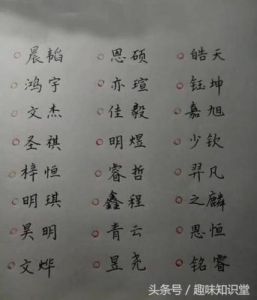 晨韬 恩硕 皓天
鸿宇 亦瑄 钰坤
文杰 佳毅 嘉旭
圣祺 明煜 少钦
梓恒 睿哲 羿凡
明琪 鑫程 之麟
昊明 青云 思恒
文烨 昱尧 铭睿
头条号/趣味知识堂